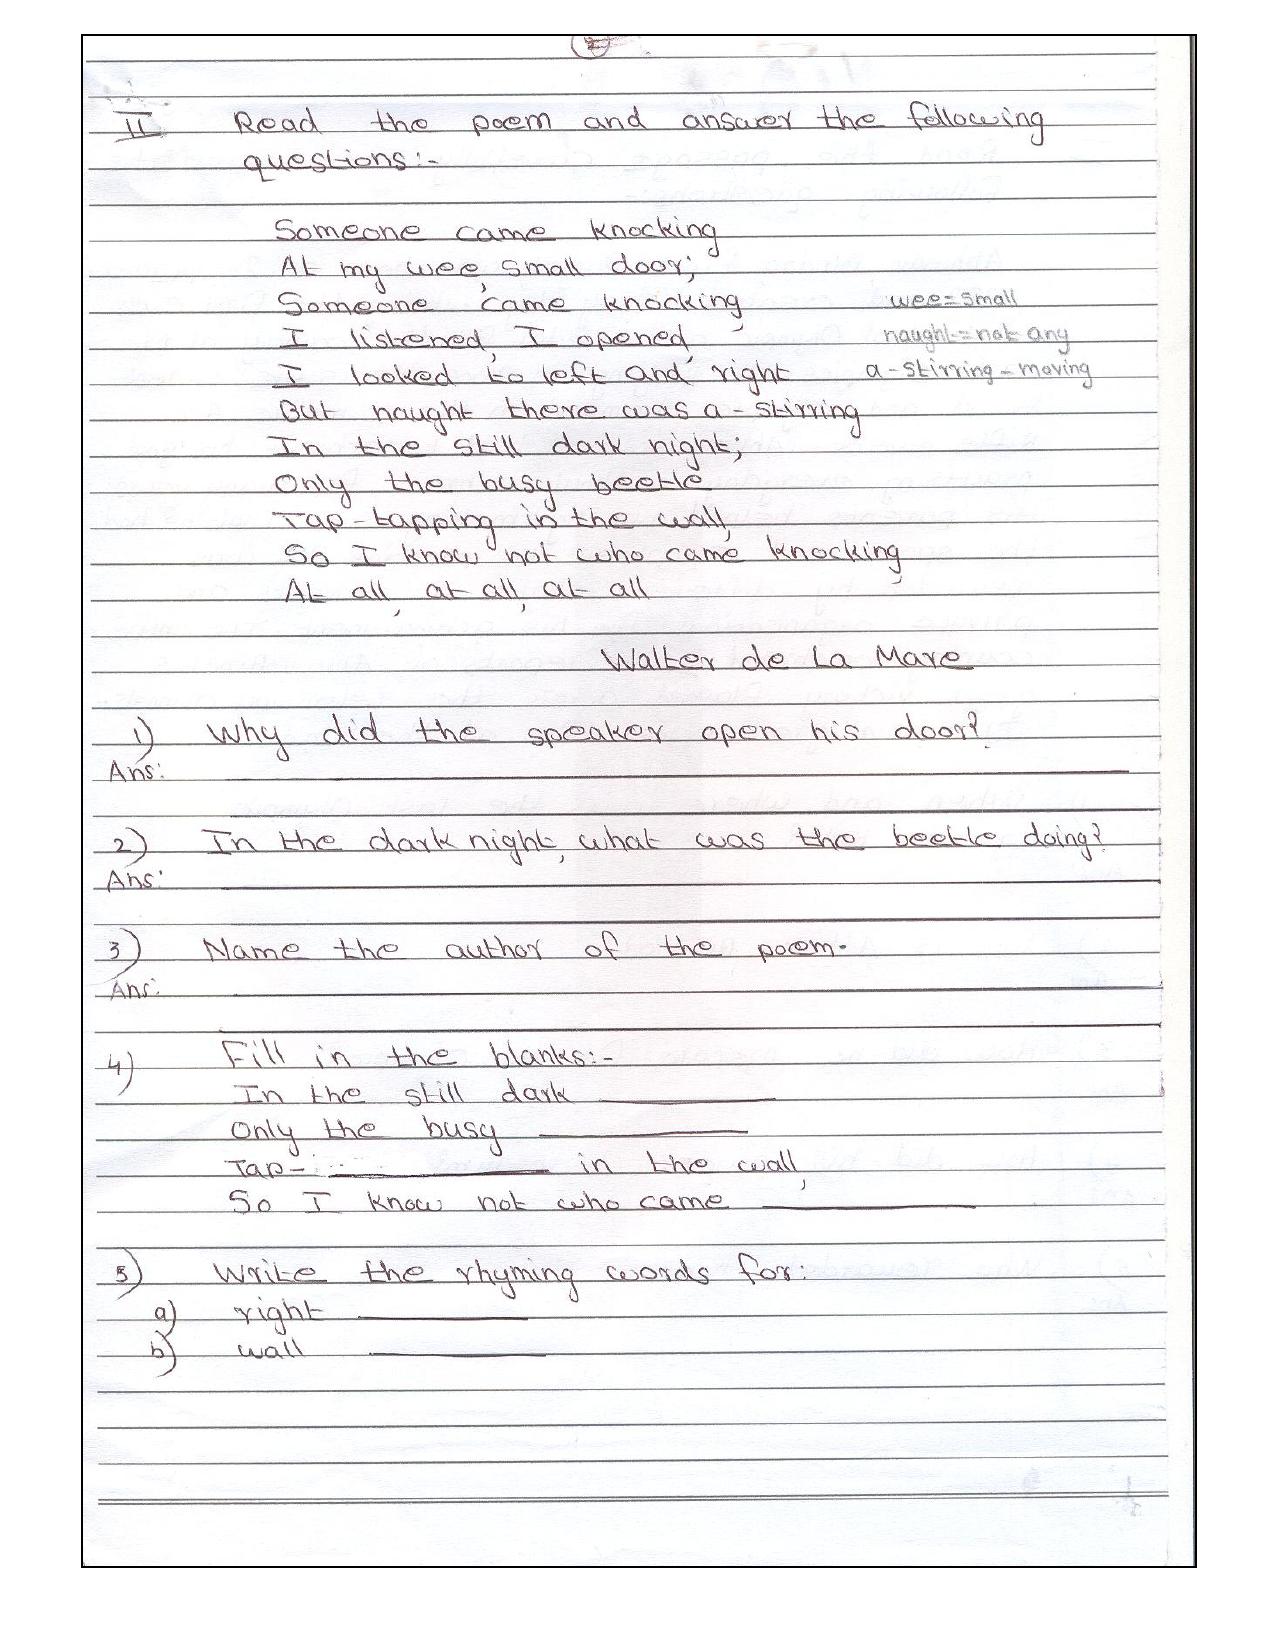 2
II Read the poem and answer the following
questions:-
Someone came knocking
At my wee, small door;
Someone came knocking
wee=small
I listened, I opened,
naught=not any
I looked to left and right
a-stirring-moving
But naught there was a-stirring
In the still dark night;
Only the busy beetle
Tap-tapping in the wall,
So I know not who came knocking,
At all, at all, at all
Walter de La Mare
1) Why did the speaker open his door?
Ans:
2) In the dark night, what was the beetle doing?
Ans:
3) Name the author of the poem.
Ans:
4) Fill in the blanks:-
In the still dark ________
Only the busy ________
Tap- ________ in the wall,
So I know not who came ________
5) Write the rhyming words for:
a) right ________
b) wall ________